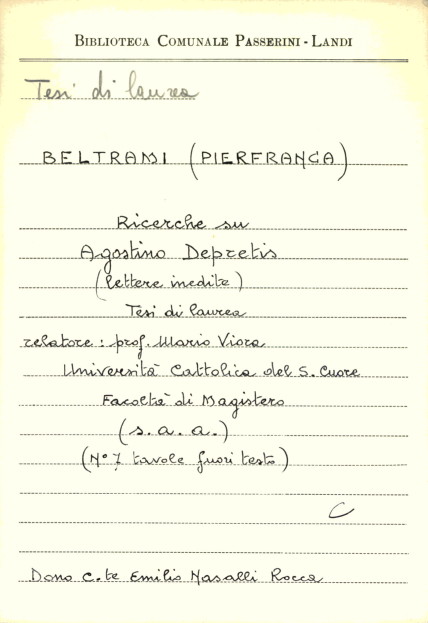 BIBLIOTECA COMUNALE PASSERINI - LANDI
Tesi di laurea
BELTRAMI (PIERFRANCA)
Ricerche su
Agostino Depretis
(lettere inedite)
Tesi di laurea
relatore: prof. Mario Viora
Università Cattolica del S. Cuore
Facoltà di Magistero
(s. a. a.)
(N° 7 tavole fuori testo)
C
Dono C.te Emilio Nasalli Rocca